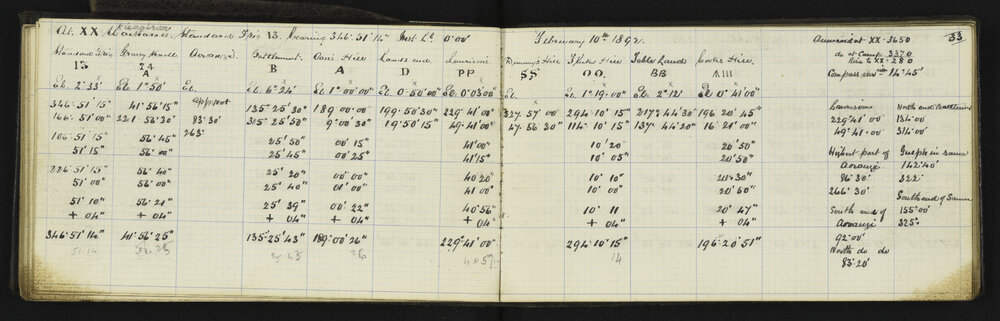 At XX Standard Trig 13. Bearing 346°51'14" Inst. Lo 0·00' February 10th 1892. Aneroid at XX - 3650 33
do at Camp. 3370
Rise to XX - 280
Standard Trig Grassy Knoll Aorangi Battlement Oasis Hill Lands end Lauriston Dummy's Hill Table Lands Cooks Hill Compass 14°45'
13 74 A B A D PP SS OO. BB AIII
El. 2°33' El 1°50' El. El. 6°24' El 1°00'00" El. 0°50'00" El. 0°03'00" El. El. 1°19'00 El. 2°12' El 0°41'00"
346·51'15" 41°56'15" 135°25'30" 189·00·00" 199·50'30" 229·41'00" 227·57 00 294·10'15 317·44'30" 196 20'45 Lauriston North end Battlement
166·51'00" 221 56'30" 83·30' 315°25'50" 9°00'30" 19°50'15" 49·41'00" 47·56 30" 114·10'15" 137·44'20" 16°21'00" 229°41'00 134·00
263· 49·41·00 314·00
166·51'15" 56'45" 25'50" 00'15" 41'00" 10'20" 20'50"
51'15" 56'00" 25'45" 00'25" 41'15" 10'05" 20'50" Highest part of in same
226·51'15" 56'40" 25'20" 00'00" 40'20" 10'10" 20'30" Aorangi 142°40'
51'00" 56'00" 25'40" 01'00" 41'00" 10'00" 20'50" 86·30' 322·
266°30' South end of Same
51'10" 56'21" 25'39" 00'22" 40'56" 10'11 20'47" South end of 155·00'
+ 04" + 04" + 04" + 04" + 04" + 04" + 04" Aorangi 325·
346°51'14" 41°56'25" 135·25'43" 189·00'26" 229°41'00" 294·10'15" 196°20'51" 92·00'
51·14 56 25 25 43 26 14 North do do
83·20'